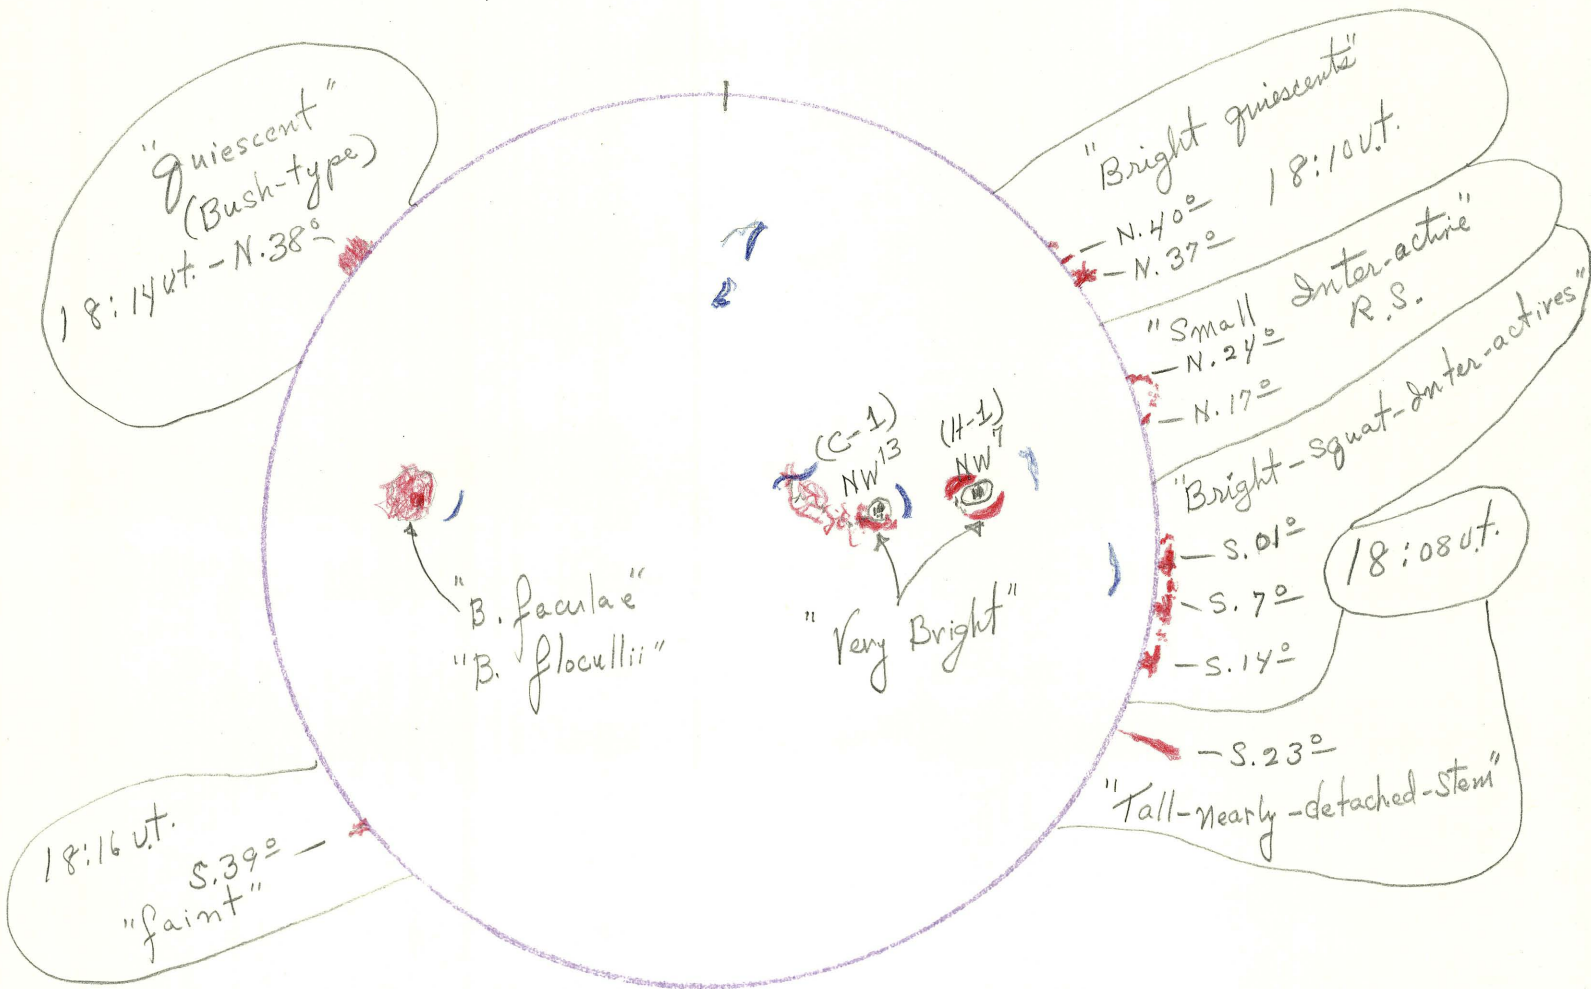 "Quiescent"
(Bush-type)
18:14 U.t. - N.38º
"Bright quiescents"
18:10 U.t.
N.40º
N.37º
"Small Inter-active"
R.S.
N.24º
N.17º
"Bright-Squat-Inter-actives"
S.01º
S.7º
S.14º
18:08 U.t.
S.23º
"Tall-nearly-detached-Stem"
(C-1)
NW13
(H-1)
NW7
"Very Bright"
"B. faculae"
"B. flocullii"
18:16 U.t.
S.39º
"faint"